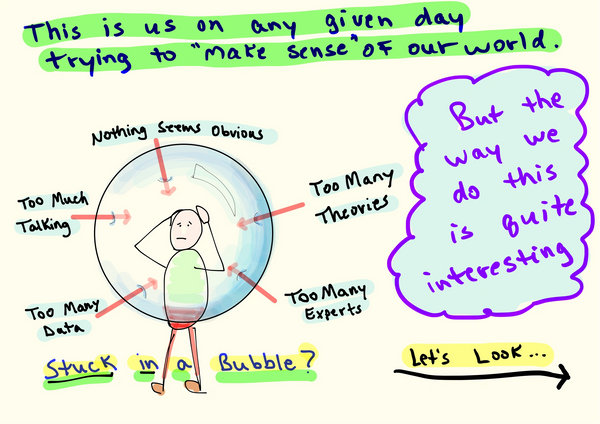 This is us on any given day
trying to "make sense" of our world.
Nothing Seems Obvious
Too Much
Talking
Too Many
Theories
Too Many
Data
Too Many
Experts
Stuck in a Bubble?
But the
way we
do this
is quite
interesting
Let's Look...